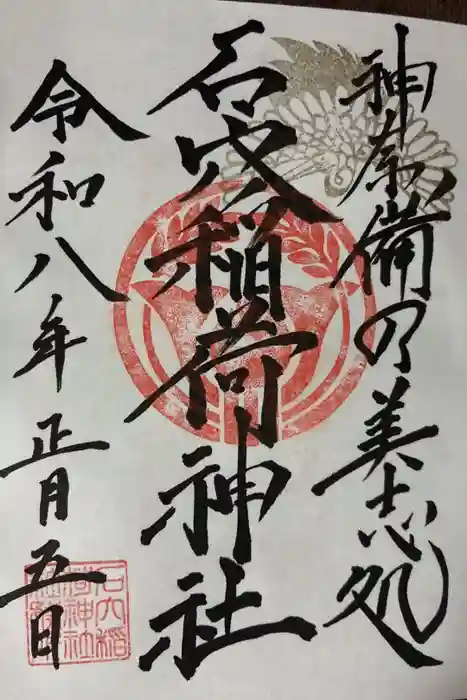 神奈備乃美志処
石穴稲荷神社
令和八年正月五日
石穴稲
荷神社